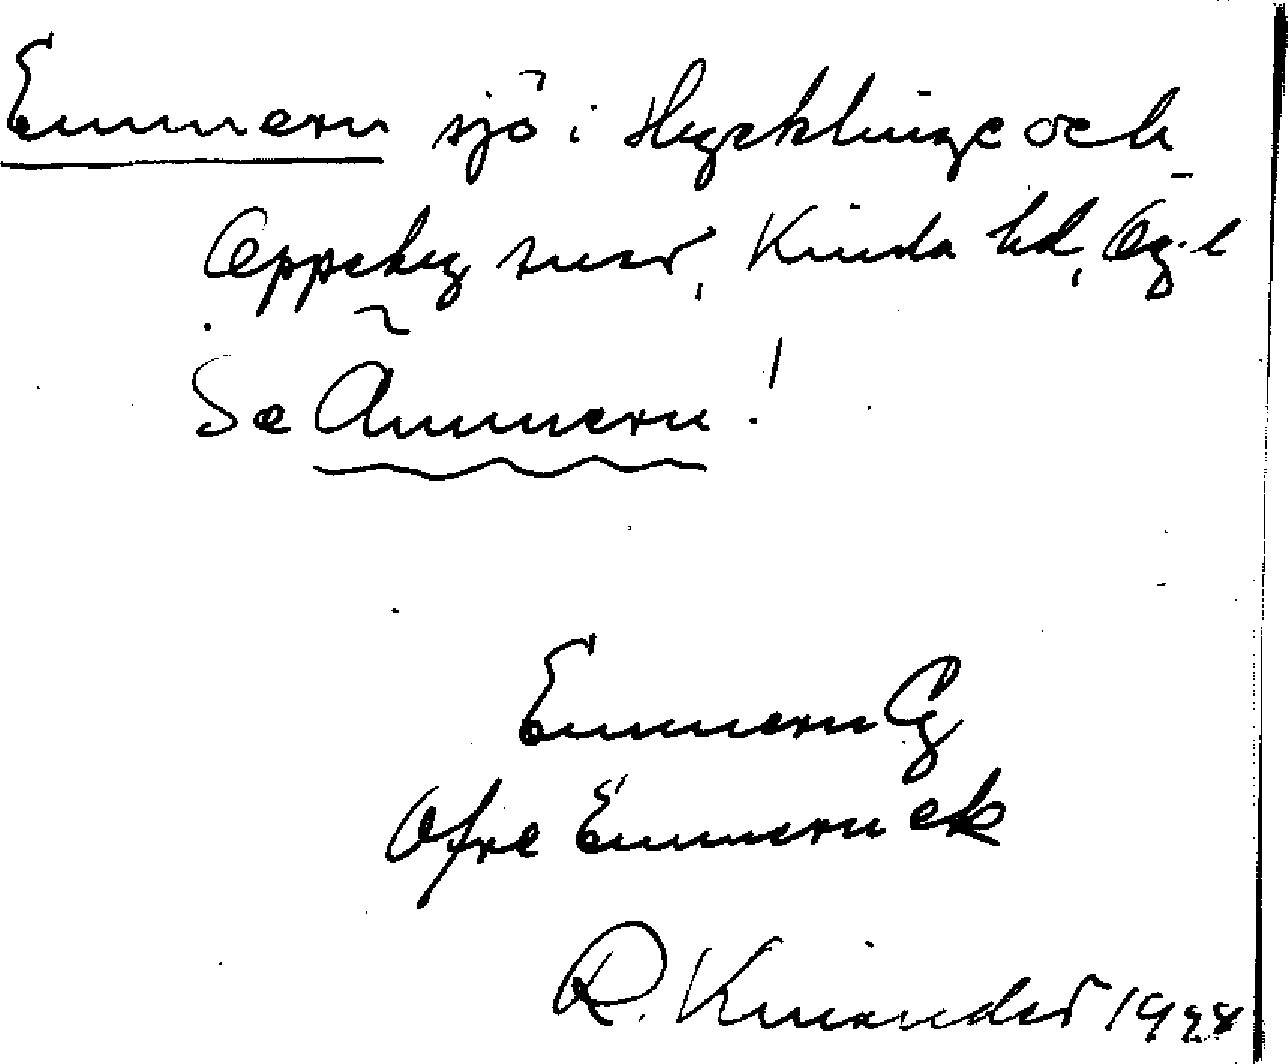 Emmern sjö i Hycklinge och
Oppeby snr, Kinda hd, Ög. l
Se Ämmern!
Emmern G
Ofre Emmern ek
R. Kinander 1928